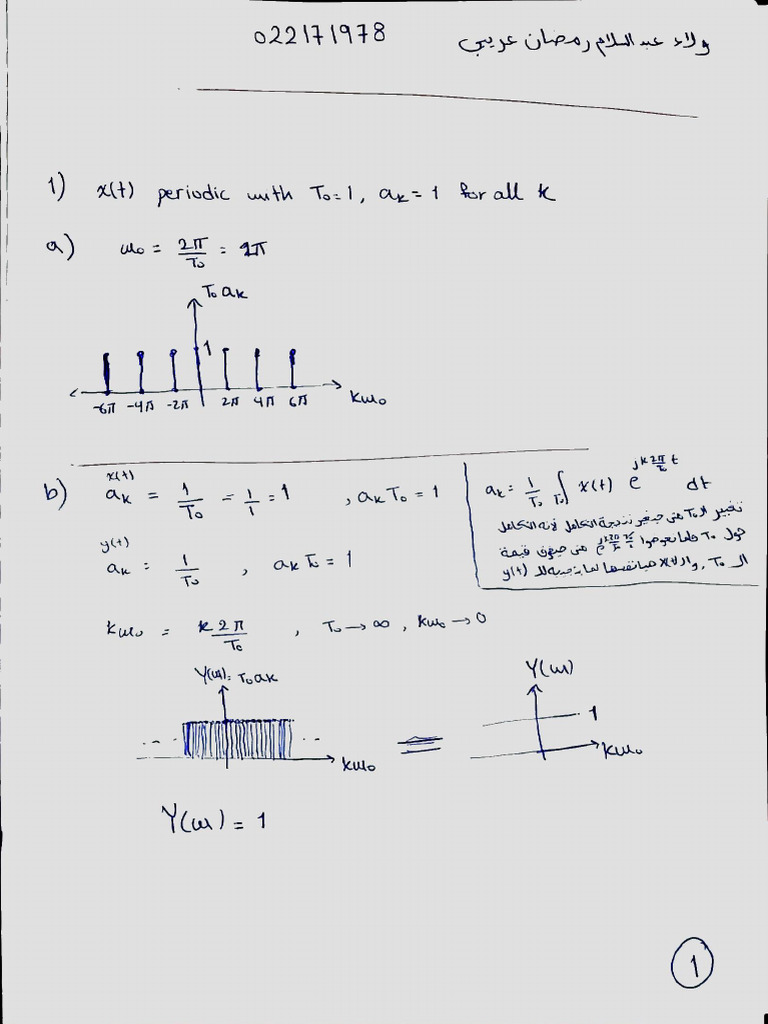 022171978 ولاء عبد السلام رمضان عريبي
1) x(t) periodic with T₀=1, aₖ=1 for all k
a) ω₀ = 2π/T₀ = 2π
T₀ aₖ
1
-6π -4π -2π 2π 4π 6π kω₀
b) x(t)
aₖ = 1/T₀ = 1/1 = 1 , aₖ T₀ = 1
y(t)
aₖ = 1/T₀ , aₖ T₀ = 1
aₖ = 1/T₀ ∫T₀ x(t) e^(jk 2π/T₀ t) dt
تغيير الـ T₀ مش حيغير نتيجة التكامل لأنه التكامل
حول T₀ فلما نعوضوا مش حيكون قيمة
الـ T₀, والـ x(t) هيا نفسها لما بنسبة للـ y(t)
kω₀ = k 2π/T₀ , T₀ → ∞ , kω₀ → 0
Y(ω) = T₀ aₖ
kω₀
=
Y(ω)
1
kω₀
Y(ω) = 1
1